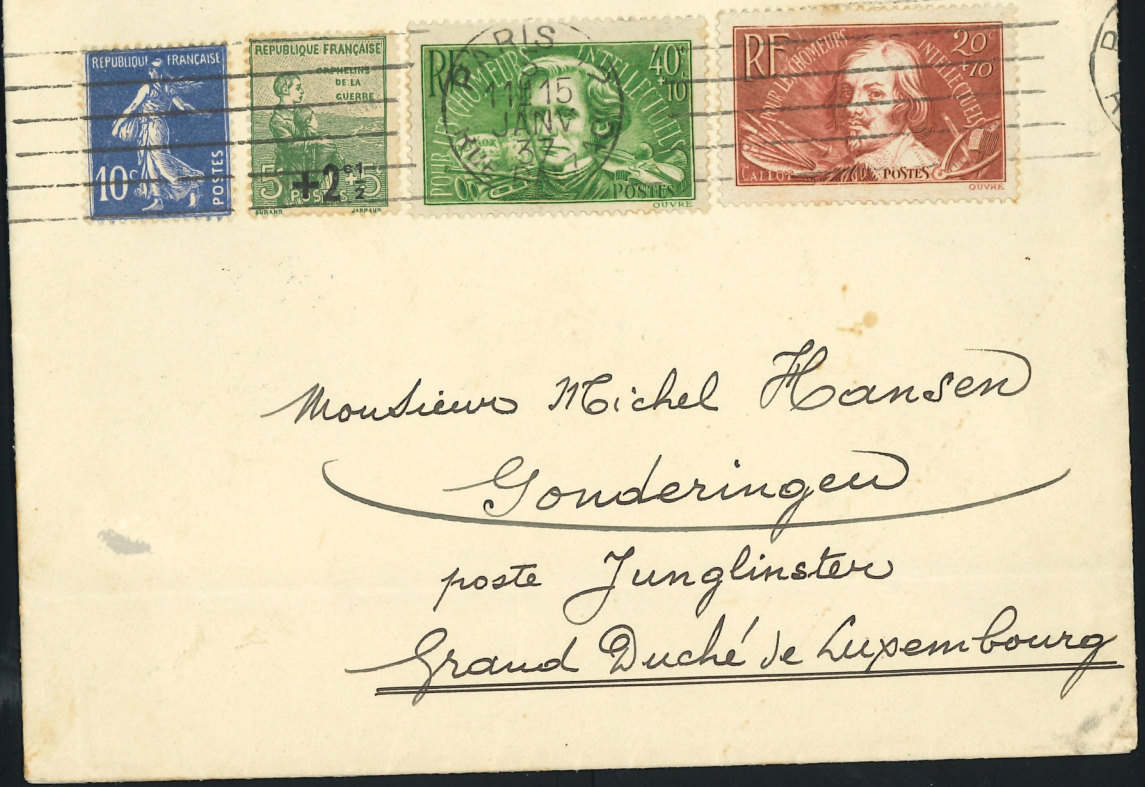 REPUBLIQUE FRANÇAISE
10c
POSTES
REPUBLIQUE FRANÇAISE
ORPHELINS
DE LA
GUERRE
5c +5
POSTES
+2c 1/2
RF
POUR LES CHÔMEURS INTELLECTUELS
40c
+10c
POSTES
OUVRÉ
PARIS
11H15
JANV
37
RF
POUR LES CHÔMEURS INTELLECTUELS
20c
+10c
CALLOT
POSTES
OUVRÉ
Monsieur Michel Hansen
Gonderingen
poste Junglinster
Grand Duché de Luxembourg